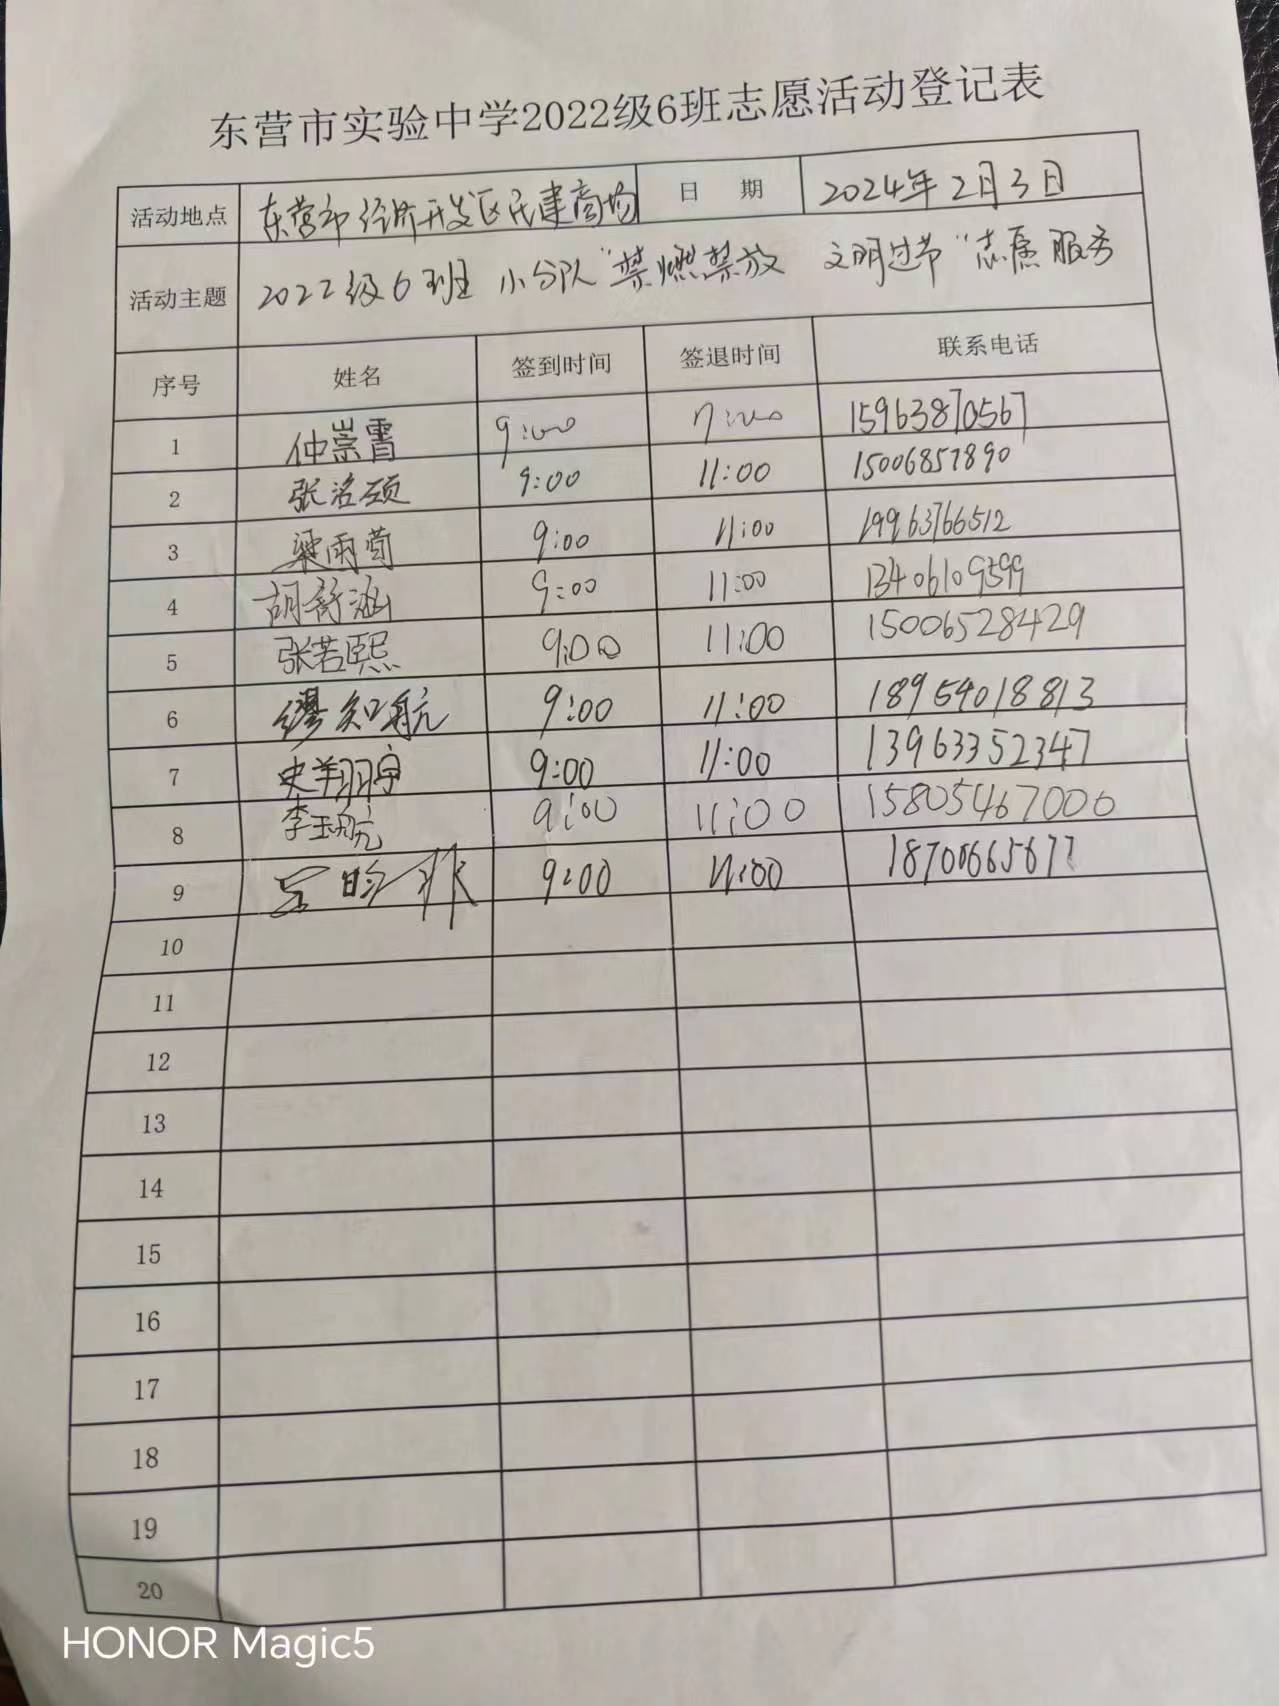 东营市实验中学2022级6班志愿活动登记表
活动地点 东营市经济开发区民建商场 日 期 2024年2月3日
活动主题 2022级6班 小分队"禁燃禁放 文明过节"志愿服务
序号 姓名 签到时间 签退时间 联系电话
1 仲崇霄 9:00 11:00 15963870567
2 张洺硕 9:00 11:00 15006857890
3 梁雨萌 9:00 11:00 19963766512
4 胡舒涵 9:00 11:00 13406109599
5 张若熙 9:00 11:00 15006528429
6 缪知航 9:00 11:00 18954018813
7 史翔宇 9:00 11:00 13963352347
8 李玉航 9:00 11:00 15805467006
9 9:00 11:00
10
11
12
13
14
15
16
17
18
19
20
HONOR Magic5